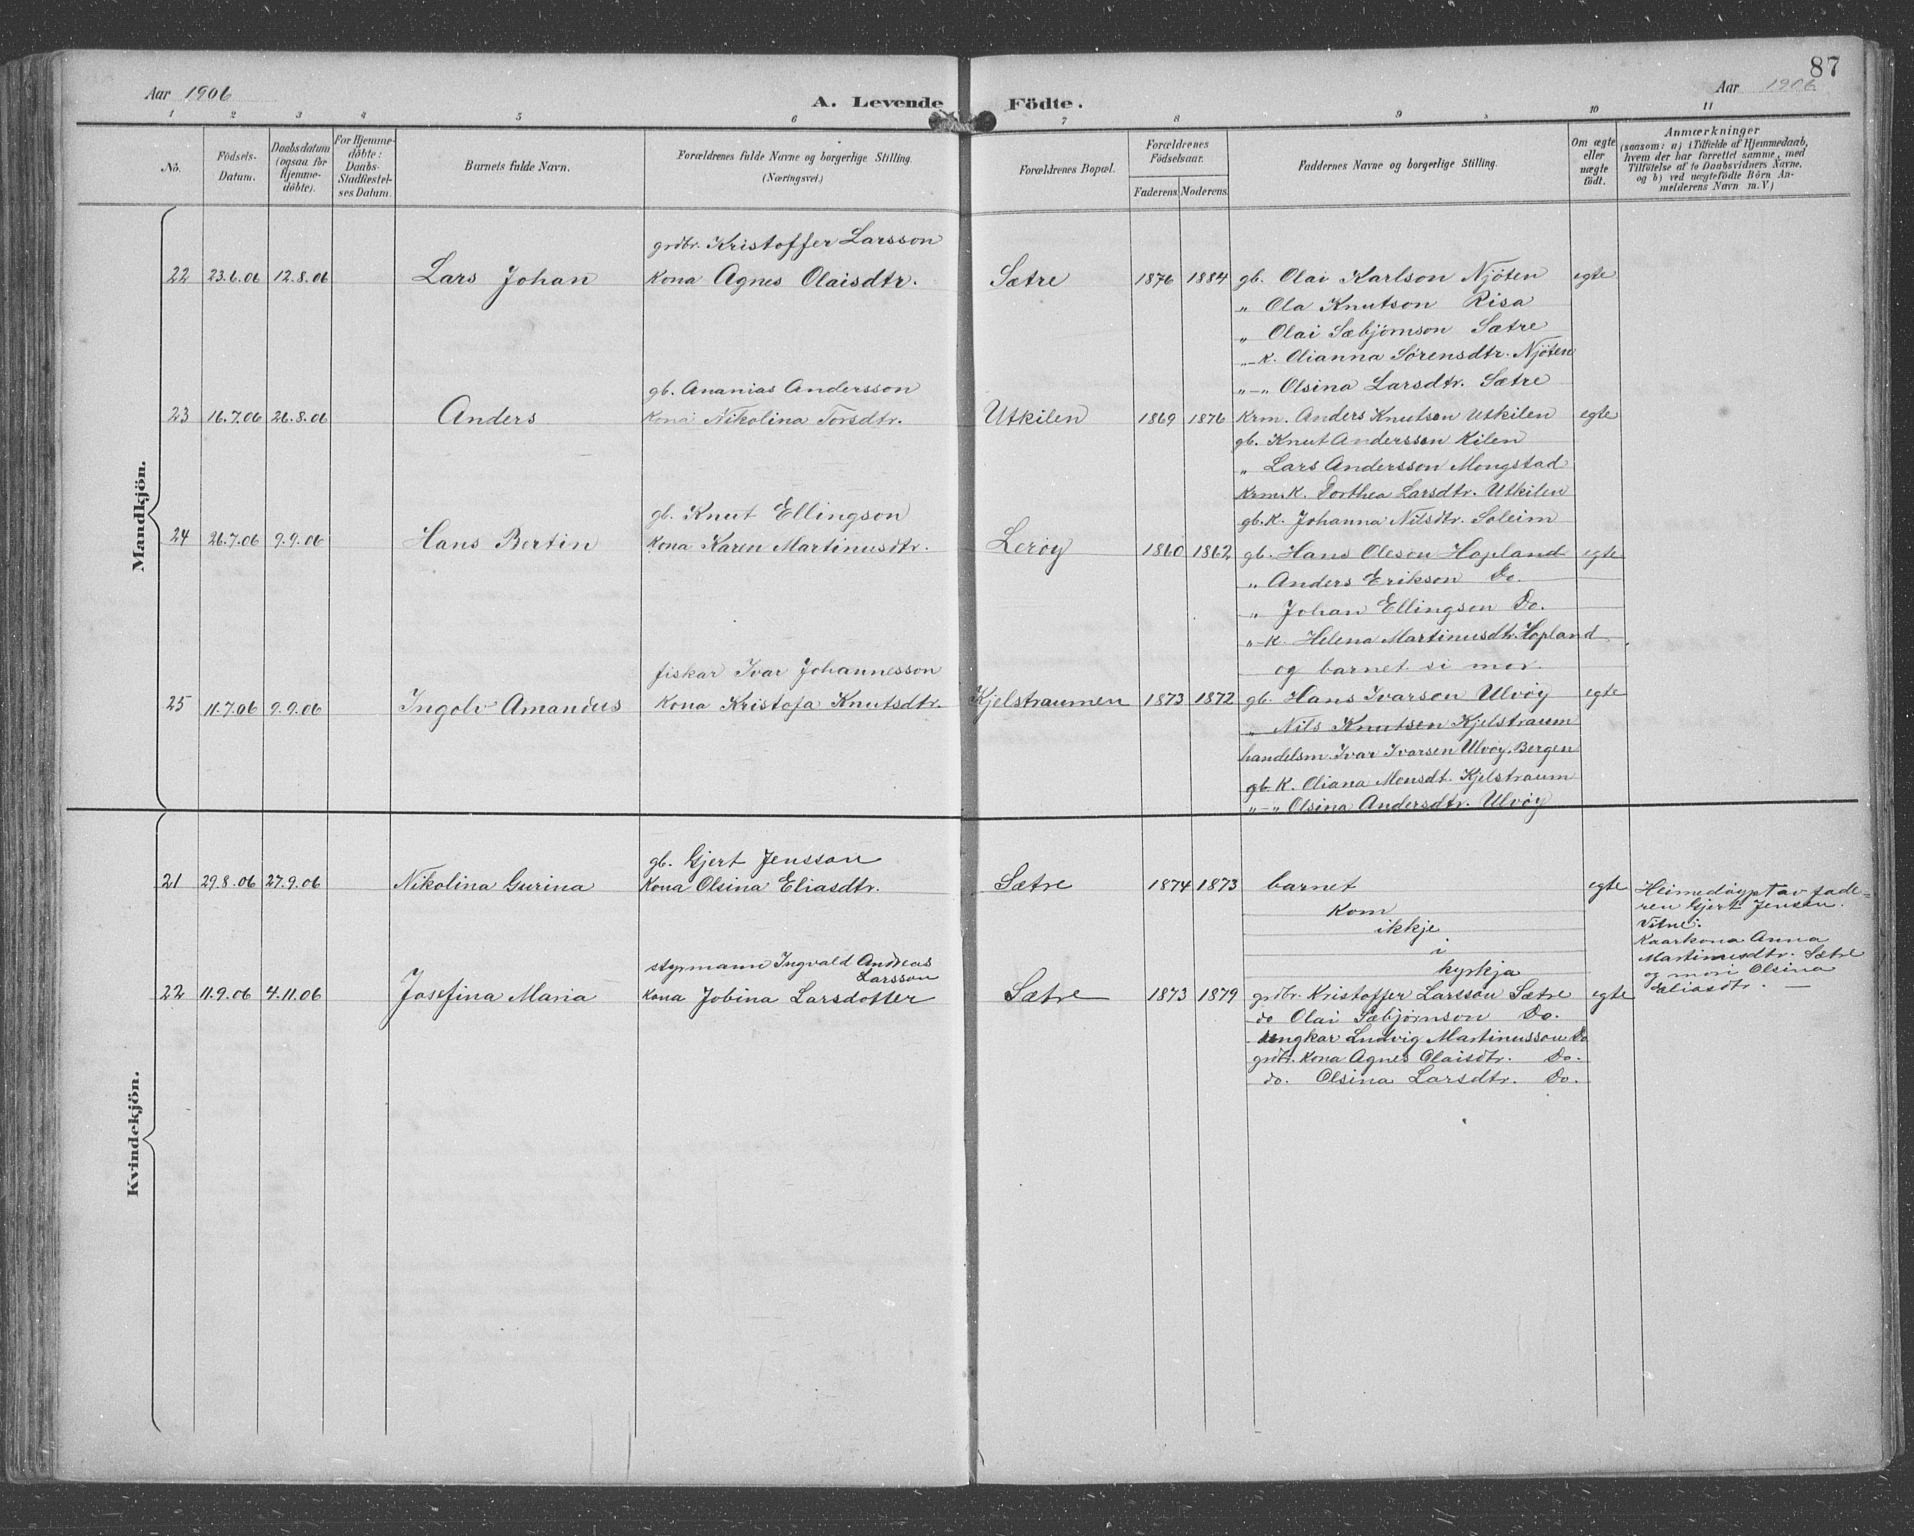 87
Aar 1906 A. Levende Födte. Aar 1906
1 2 3 4 5 6 7 8 9 10 11
No.
Födsels-
Datum.
Daabsdatum
(ogsaa for
Hjemme-
döbte).
For Hjemme-
döbte:
Daabs-
Stadfæstel-
ses Datum.
Barnets fulde Navn.
Forældrenes fulde Navne og borgerlige Stilling.
(Næringsvei.)
Forældrenes Bopæl.
Forældrenes
Födselsaar.
Faderens. Moderens.
Faddernes Navne og borgerlige Stilling.
Om ægte
eller
uægte
födt.
Anmærkninger
(saasom: a) i Tilfælde af Hjemmedaab,
hvem der har forrettet samme, med
Tilföielse af to Daabsvidners Navne,
og b) ved uægtefödte Börn An-
melderens Navn m. V.)
Mandkjön.
grdbr. Kristoffer Larsson
22 23.6.06 12.8.06 Lars Johan Kona Agnes Olaisdtr. Sætre 1876 1884 gb. Olai Karlson Njöten egte
„ Ola Knutson Risa
„ Olai Sæbjørnson Sætre
„-K. Olianna Sørensdtr. Njöten
gb. Ananias Andersson
„-„ Olsina Larsdtr. Sætre
23 16.7.06 26.8.06 Anders Kona Nikolina Torsdtr. Utkilen 1869 1876 Krm. Anders Knutson Utkilen egte
gb. Knut Andersson Kilen
„ Lars Andersson Mongstad
Krm.K. Dorthea Larsdtr. Utkilen
gb. Knut Ellingson
gb.K. Johanna Nilsdtr. Soleim
24 26.7.06 9.9.06 Hans Bertin Kona Karen Martinusdtr. Lerøy 1860 1862 gb. Hans Oleson Hopland egte
„ Anders Erikson Do.
„ Johan Ellingson Do.
„-K. Helena Martinusdtr. Hopland
og barnet si mor.
fiskar Ivar Johannesson
25 11.7.06 9.9.06 Ingolv Amandus Kona Kristofa Knutsdtr. Kjelstraumen 1873 1872 gb. Hans Ivarson Ulvøy egte
„ Nils Knutsen Kjelstraum
handelsm. Ivar Ivarsen Ulvøy, Bergen
gb. K. Oliana Monsdt. Kjelstraum
„-„ Olsina Andersdtr. Ulvøy
Kvindekjön.
gb. Gjert Jensson
21 29.8.06 27.9.06 Nikolina Gurina Kona Olsina Eliasdtr. Sætre 1874 1873 barnet egte Heimedøypt av fade-
ren Gjert Jensen.
kom
Vitne:
ikkje
Kaarkona Anna
i
Martinusdtr. Sætre
kyrkja
og mori Olsina
Eliasdtr. —
styrmann Ingvald Andreas
Larsson
22 11.9.06 4.11.06 Josefina Maria Kona Jobina Larsdotter Sætre 1873 1879 grdbr. Kristoffer Larsson Sætre egte
do Olai Sæbjørnson Do.
ungkar Ludvig Martinusson Do
grdbr. Kona Agnes Olaisdtr. Do.
do. Olsina Larsdtr. Do.